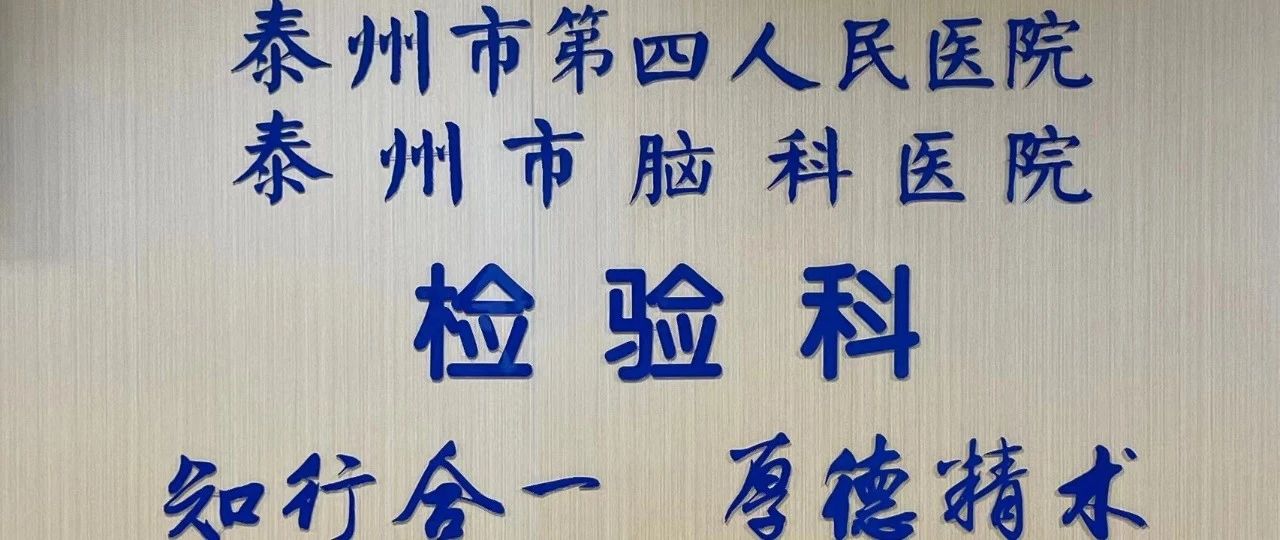 泰州市第四人民医院
泰州市脑科医院
检验科
知行合一 厚德精术